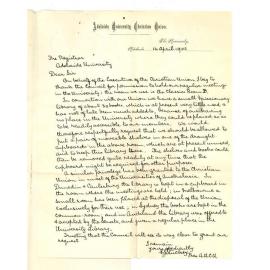 Adelaide University Christian Union.
The University
Adelaide 16 April 1908
The Registrar
Adelaide University
Dear Sir
On behalf of the Executive of the Christian Union I beg to
thank the Council for permission to hold our regular meeting
in the University; the room we use is the Classics Room
In connection with our Union we have a small missionary
library of about books which is at present very little used &
has not of late been added to, because of our having
no place in the University where they could be placed so as
to be readily accessible to our members. We would
therefore respectfully request that we should be allowed to
put a pair of moveable shelves in one of the
cupboards in the above room, which are at present unused,
and to keep this library there. The shelves and books could
then be removed quite readily at any time that the
cupboard might be required for other purposes
A similar privilege has been granted to the Christian
Union in most of the other Universities of Australasia. In
Dunedin & Canterbury the library is kept in a cupboard in
the room where the meetings are held; in Melbourne a
small room has been placed at the disposal of the Union
exclusively for their use; in Sydney the books are kept in the
common room; and in Auckland the library was offered &
accepted by the Council, and given a regular place in the
University library.
Trusting that the Council will see its way clear to grant our
request
I remain
yours respectfully
Sec. A.U.C.U.